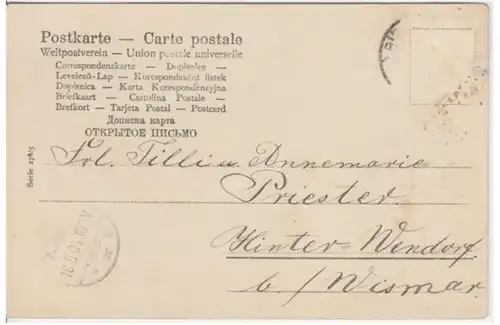 Postkarte — Carte postale
Weltpostverein — Union postale universelle
Correspondenzkarte — Dopisnice —
Levelező-Lap — Korespondenční lístek
Dopisnica — Karta Korespondenzyjna
Briefkaart — Cartolina Postale —
Brefkort — Tarjeta Postal — Postcard
Дописна карта
ОТКРЫТОЕ ПИСЬМО
Serie
Frl. Tilli u. Annemarie
Priester.
Hinter-Wendorf
b/ Wismar